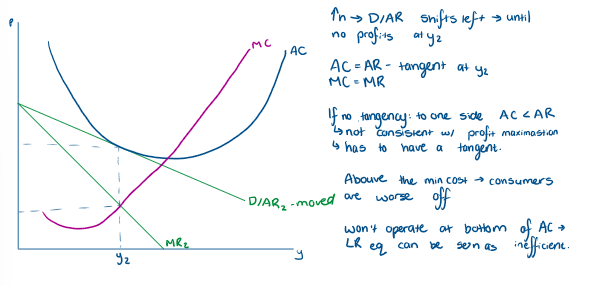 P
MC
AC
D/AR₂ - moved
MR₂
y₂
y
↑n → D/AR shifts left → until
no profits at y₂
AC = AR - tangent at y₂
MC = MR
If no tangency: to one side AC < AR
↳ not consistent w/ profit maximastion
↳ has to have a tangent.
Abouve the min cost → consumers
are worse off
won't operate at bottom of AC →
LR eq can be seen as inefficient.